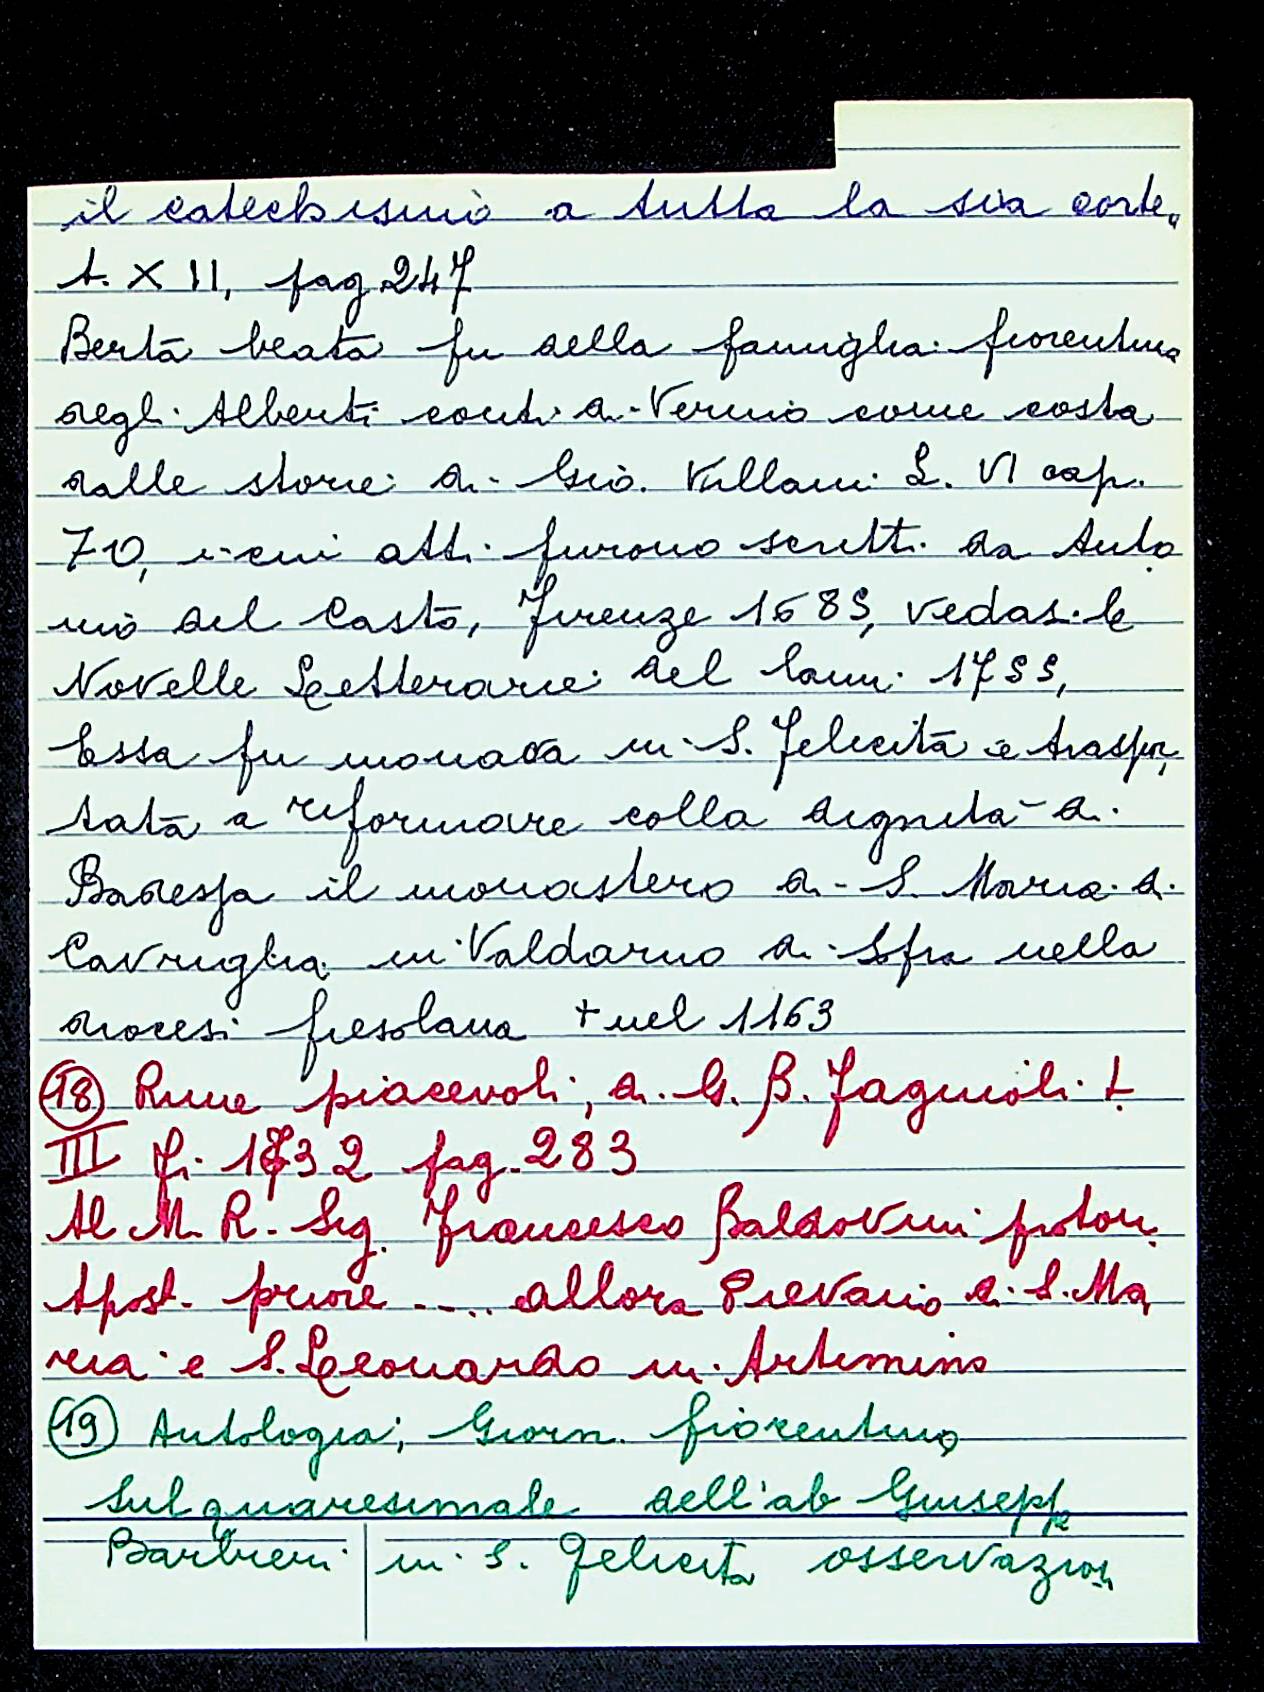 il catechismo a tutta la sua corte,
t. XII, pag 247
Berta beata fu della famiglia fiorentina
degli Alberti conti di Vernio come costa
dalle storie di Gio. Villani L. VI cap.
70, i cui atti furono scritti da Anto
nio del Casto, Firenze 1689, vedasi le
Novelle Letterarie del Lami 1755,
Essa fu monaca in S. Felicità e traspor
tata a riformare colla dignità di
Badessa il monastero di S. Maria di
Cavriglia in Valdarno di Sopra nella
diocesi fiesolana + nel 1163
(18) Rime piacevoli, di G. B. Fagiuoli t.
III Fi. 1732 pag. 283
Al M. R. Sig. Francesco Baldovini proton.
Apost. priore .... allora Pievano di S. Ma
ria e S. Leonardo in Artimino
(19) Antologia, Giorn. fiorentino
Sul quaresimale dell'ab Giuseppe
Barbieri in S. Felicita osservazioni